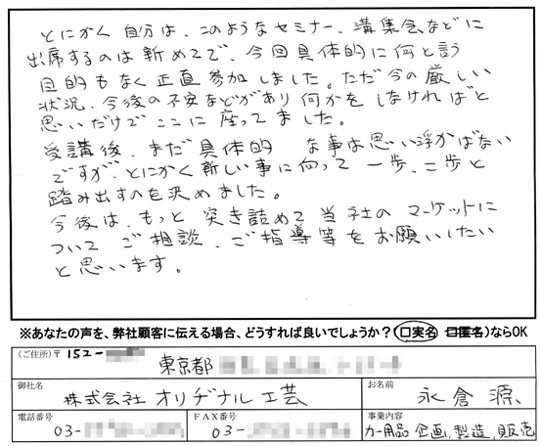 とにかく自分は、このようなセミナー、講集会などに
出席するのは初めてで、今回具体的に何と言う
目的もなく正直参加しました。ただ今の厳しい
状況、今後の不安などがあり何かをしなければと
思いだけでここに座ってました。
受講後、まだ具体的 な事は思い浮かばない
ですが、とにかく新しい事に向って一歩、二歩と
踏み出すのを決めました。
今後は、もっと突き詰めて当社のマーケットに
ついてご相談、ご指導等をお願いしたい
と思います。
※あなたの声を、弊社顧客に伝える場合、どうすれば良いでしょうか?(口実名 口匿名)ならOK
(ご住所)〒152-
東京都
御社名 株式会社オリヂナル工芸 お名前 永倉源、
電話番号 03- FAX番号 03- 事業内容 カー用品企画、製造、販売